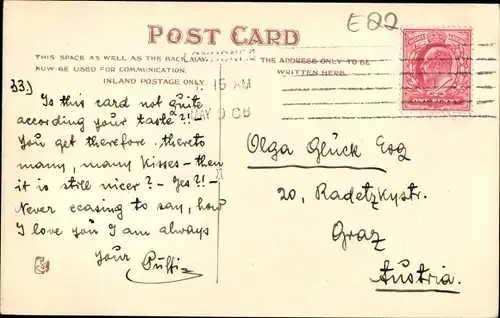 E22
POST CARD
THIS SPACE AS WELL AS THE BACK MAY
NOW BE USED FOR COMMUNICATION.
INLAND POSTAGE ONLY.
THE ADDRESS ONLY TO BE
WRITTEN HERE.
15 AM
MAY 9 08
ONE PENNY
33)
Is this card not quite
according your taste?!–
You get therefore thereto
many, many kisses – then
it is still nicer? – Yes?!–
Never ceasing to say, how
I love you I am always
your Puffi
Olga Glück Esq
20, Radetzkystr.
Graz
Austria.